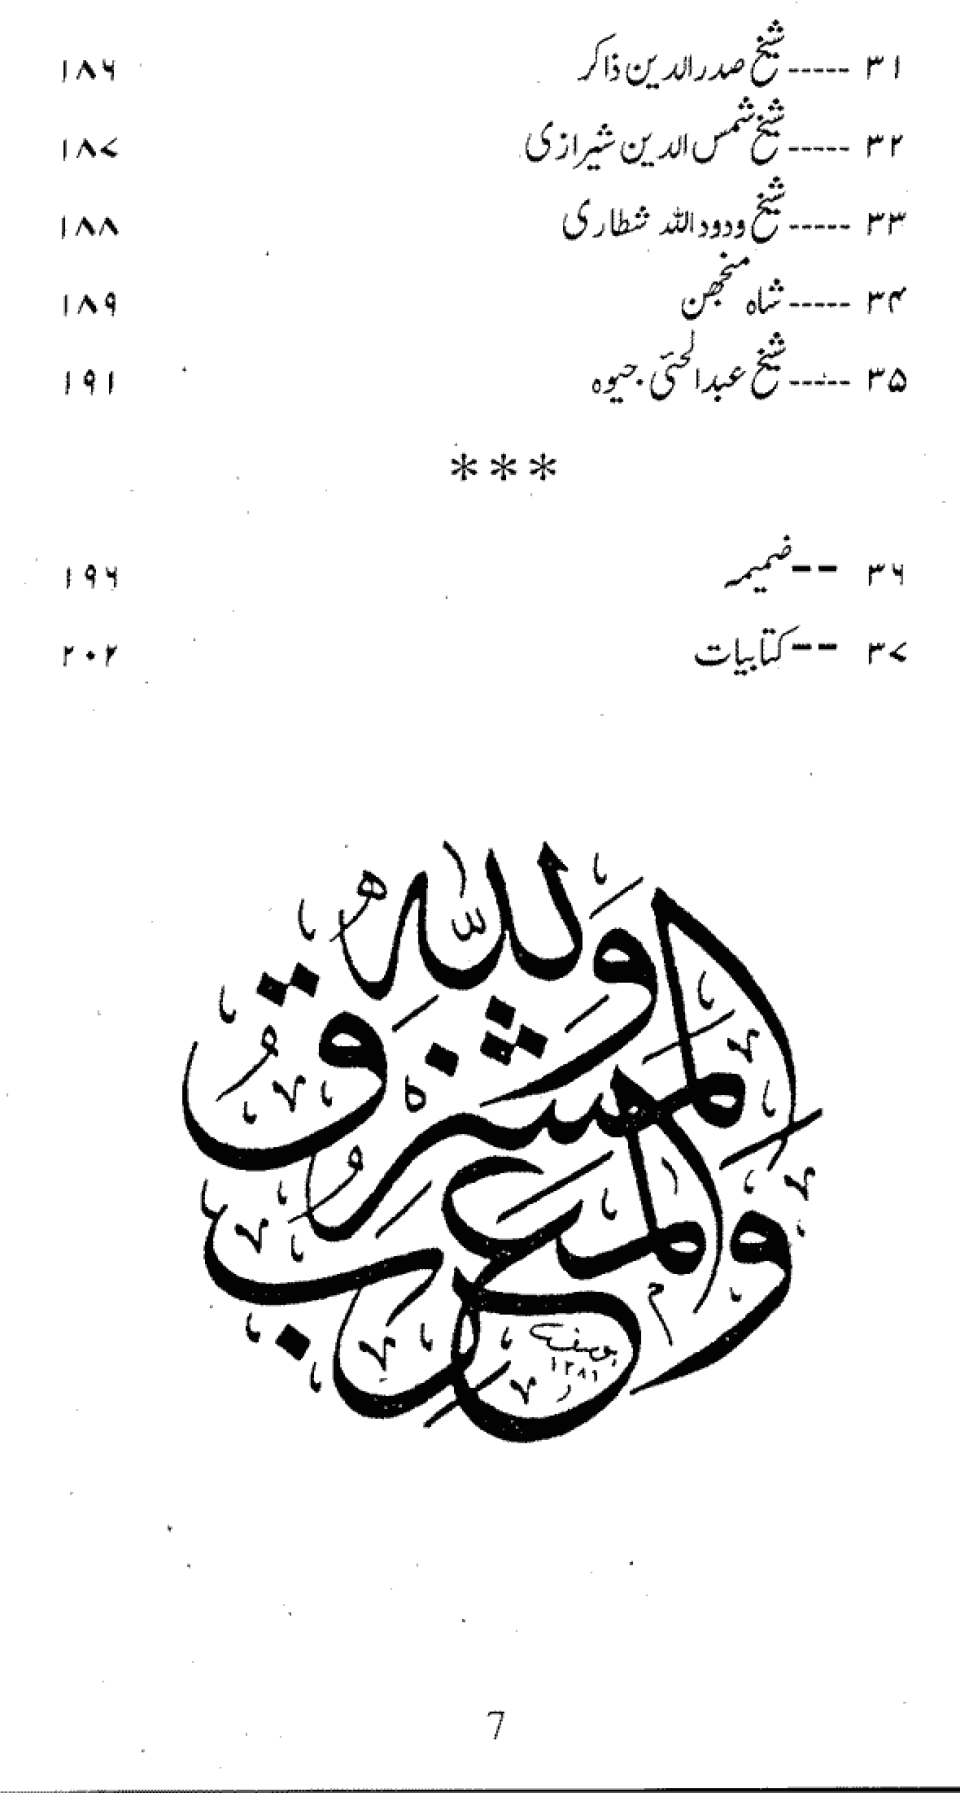 ۳۱ ----- شیخ صدرالدین ذاکر ۱۸۶
۳۲ ----- شیخ شمس الدین شیرازی ۱۸۷
۳۳ ----- شیخ ودود اللہ شطاری ۱۸۸
۳۴ ----- شاہ منجھن ۱۸۹
۳۵ ----- شیخ عبدالحئی جیوہ ۱۹۱
***
۳۶ -- ضمیمہ ۱۹۶
۳۷ -- کتابیات ۲۰۲
وَلِلّٰهِ الْمَشْرِقُ وَالْمَغْرِبُ
7